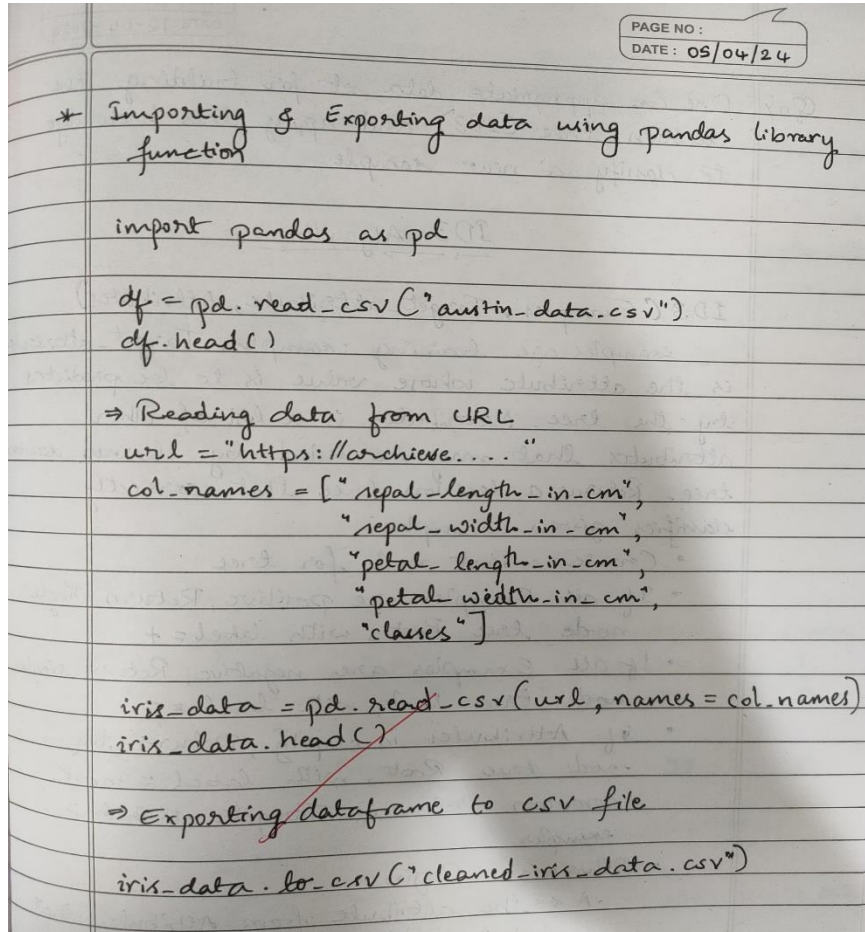 PAGE NO :
DATE : 05/04/24
* Importing & Exporting data using pandas library
function
import pandas as pd
df = pd. read_csv ("austin_data.csv")
df. head ()
⇒ Reading data from URL
url = "https://archieve. . . . "
col_names = ["sepal_length_in_cm",
"sepal_width_in_cm",
"petal_length_in_cm",
"petal_width_in_cm",
"classes"]
iris_data = pd. read_csv (url, names = col_names)
iris_data. head ()
⇒ Exporting dataframe to csv file
iris_data. to_csv ("cleaned_iris_data.csv")